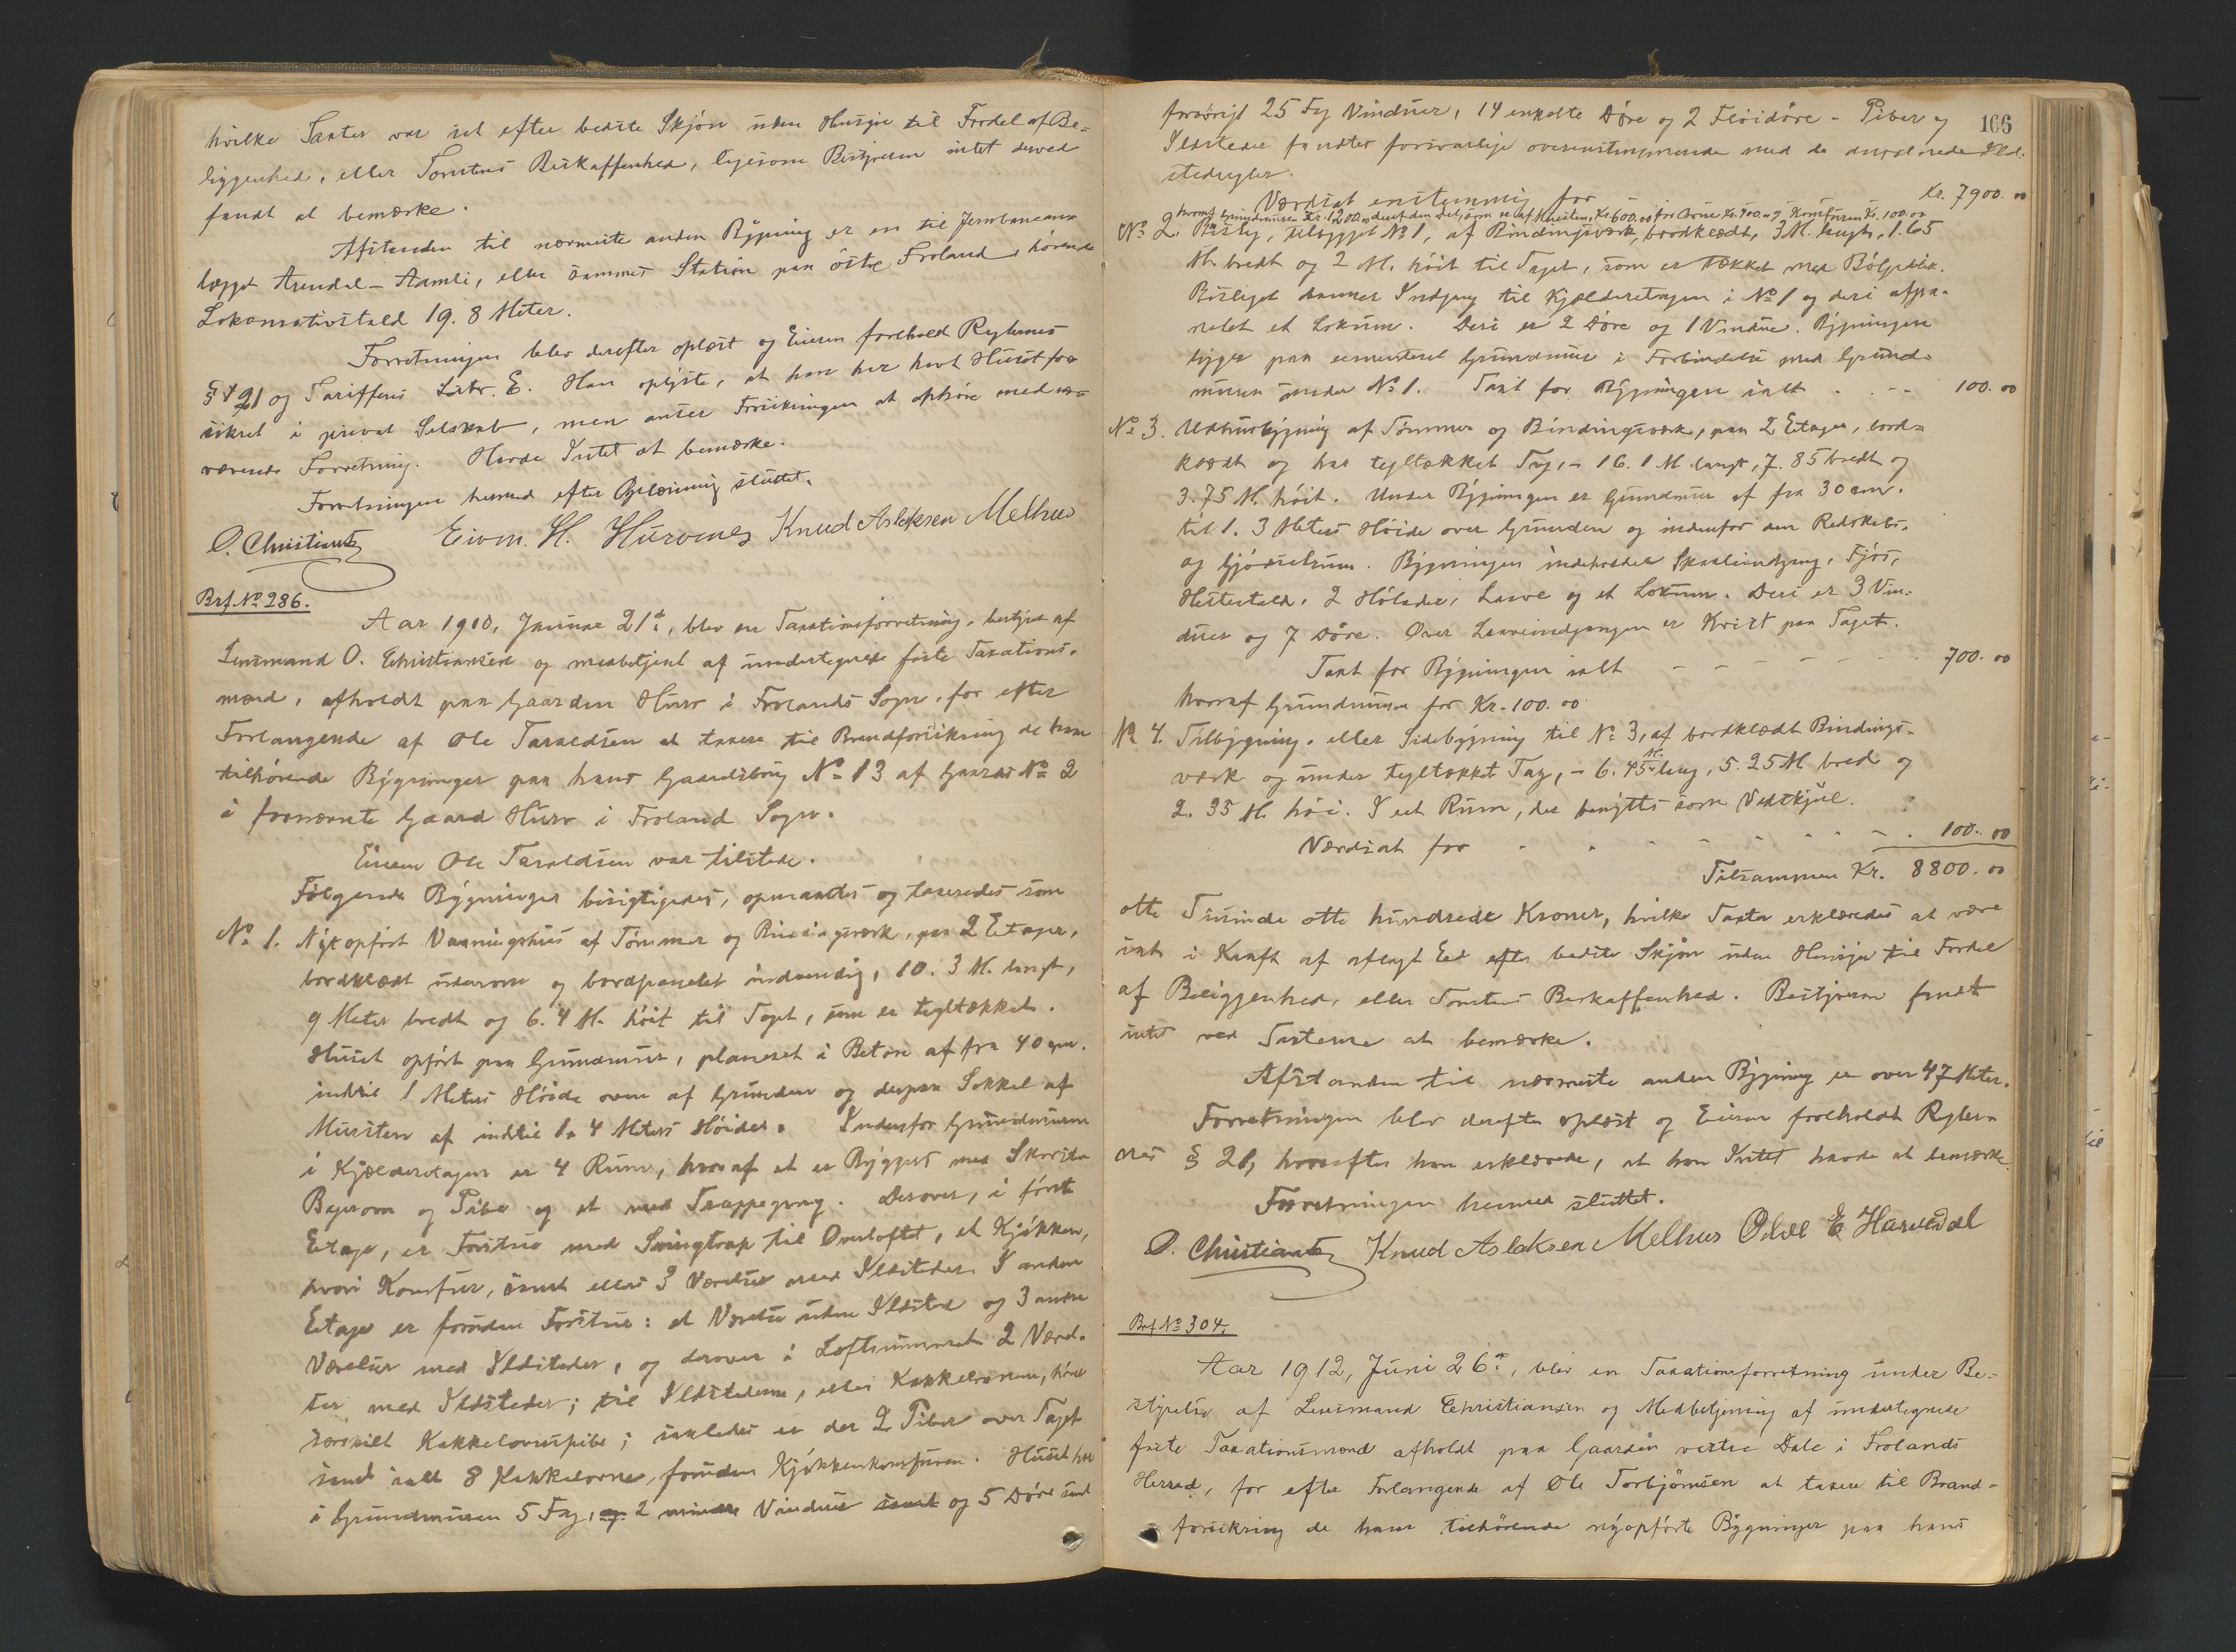 hvilke Taxter var sat efter bedste Skjøn uden Hensyn til Fordel af Be=
liggenhed, eller Tomtens Beskaffenhed, ligesom Bestyreren intet derved
fandt at bemærke.
Afstanden til nærmeste anden Bygning er en til Jernbanean=
lægget Arendal - Aamli, eller sammes Station paa østre Froland hørende
Lokomotivstald 19.8 Meter.
Forretningen blev derefter oplæst og Eieren foreholdt Reglernes
§ 21 og Tariffens Littr. E. Han oplyste, at han har havt Huset for=
sikret i privat Selskab, men anser Forsikringen at ophøre med nær=
værende Forretning. Havde Intet at bemærke.
Forretningen hermed efter Oplæsning sluttet.
O. Christiansen Eivin. H. Hurvenes Knud Aslaksen Melhus
Brf. No 286.
Aar 1910, Januar 21de, blev en Taxationsforretning, bestyret af
Lensmand O. Christiansen og medbetjent af undertegnede faste Taxations-
mænd, afholdt paa Gaarden Hurv i Frolands Sogn, for efter
Forlangende af Ole Taraldsen at taxere til Brandforsikring de ham
tilhørende Bygninger paa hans Gaardsbrug No 13 af Gaards No 2
i fornævnte Gaard Hurv i Froland Sogn.
Eieren Ole Taraldsen var tilstede.
Følgende Bygninger besigtigedes, opmaaltes og taxeredes som
No 1. Nyt opført Vaaningshus af Tømmer og Bindingsværk, paa 2 Etager,
bordklædt udenom og bordpanelet indvendig, 10.3 M. langt,
9 Meter bredt og 6.4 M. høit til Taget, som er tegltækket.
Huset opført paa Grundmur, planeret i Beton af fra 40 cm.
indtil 1 Meters Høide oven af Grunden og derpaa Sokkel af
Mursten af indtil 1.4 Meters Høide. Indenfor Grundmuren
i Kjælderetagen er 4 Rum, hvoraf et er Bryggers med Skorsten
Bagerovn og Pibe og et med Trappegang. Derover, i første
Etage, er Forstue med Svingtrap til Overloftet, et Kjøkken,
hvori Komfur, samt ellers 3 Værelser med Ildsteder. I anden
Etage er foruden Forstue: et Værelse uden Ildsted og 3 andre
Værelser med Ildsteder, og derover i Loftsrummet 2 Værel-
ser med Ildsteder; til Ildstederne, eller Kakkelovnene, hører
særskilt Kakkelovnspibe; saaledes er der 2 Piber over Taget
samt ialt 8 Kakkelovne, foruden Kjøkkenkomfuren. Huset har
i Grundmuren 5 Fag, og 2 mindre Vinduer samt og 5 Døre samt
166
forøvrigt 25 Fag Vinduer, 14 enkelte Døre og 2 Fløidøre - Piber og
Ildsteder fandtes forsvarlige overensstemmende med de anordnede Ild-
stedregler.
Værdsat enstemmig for Kr. 7900.00
hvoraf Grundmuren Kr. 1200.00 deraf den Del, som er af Mursten, Kr. 600.00 for Ovne Kr. 400.00 og Komfuren Kr. 100.00
No 2. Bislag, tilbygget No 1, af Bindingsværk, bordklædt, 3 M. langt, 1.65
M. bredt og 2 M. høit til Taget, som er tækket med Bølgeblik.
Bislaget danner Indgang til Kjælderetagen i No 1 og deri afpa-
nelet et Lokum. Deri er 2 Døre og 1 Vindue. Bygningen
ligger paa cementeret Grundmur i Forbindelse med Grund-
muren under No 1. Taxt for Bygningen ialt . . . 100.00
No 3. Udhusbygning af Tømmer og Bindingsværk, paa 2 Etager, bord=
klædt og har tegltækket Tag, - 16.1 M. langt, 7.85 bredt og
3.75 M. høit. Under Bygningen er Grundmur af fra 30 cm.
til 1.3 Meters Høide over Grunden og indenfor den Redskabs-
og Gjødselrum. Bygningen indeholder Skaaleindgang, Fjøs,
Hestestald, 2 Hølader, Laave og et Lokum. Deri er 3 Vin-
duer og 7 Døre. Over Laaveindgangen er Kvist paa Taget.
Taxt for Bygningen ialt - - - - - - 700.00
hvoraf Grundmuren for Kr. 100.00
No 4. Tilbygning, eller Sidebygning til No 3, af bordklædt Bindings-
værk og under tegltækket Tag, - 6.45 M. lang, 5.25 M bred og
2.35 M. høi. I eet Rum, der benyttes som Vedskjul.
Værdsat for - - - - - - - 100.00
Tilsammen Kr. 8800.00
otte Tusinde otte hundrede Kroner, hvilke Taxter erklæredes at være
sat i Kraft af aflagt Eed efter bedste Skjøn uden Hensyn til Fordel
af Beliggenhed, eller Tomtens Beskaffenhed. Bestyreren fandt
intet ved Taxterne at bemærke.
Afstanden til nærmeste anden Bygning er over 47 Meter.
Forretningen blev derefter oplæst og Eieren foreholdt Regler=
nes § 21, hvorefter han erklærede, at han Intet havde at bemærke.
Forretningen hermed sluttet.
O. Christiansen Knud Aslaksen Melhus Olvl E Hurvedal
Brf. No 304.
Aar 1912, Juni 26de, blev en Taxationsforretning under Be-
styrelse af Lensmand Christiansen og Medbetjening af undertegnede
faste Taxationsmænd afholdt paa Gaarden vestre Dale i Frolands
Herred, for efter Forlangende af Ole Torbjørnsen at taxere til Brand-
forsikring de ham tilhørende nyopførte Bygninger paa hans